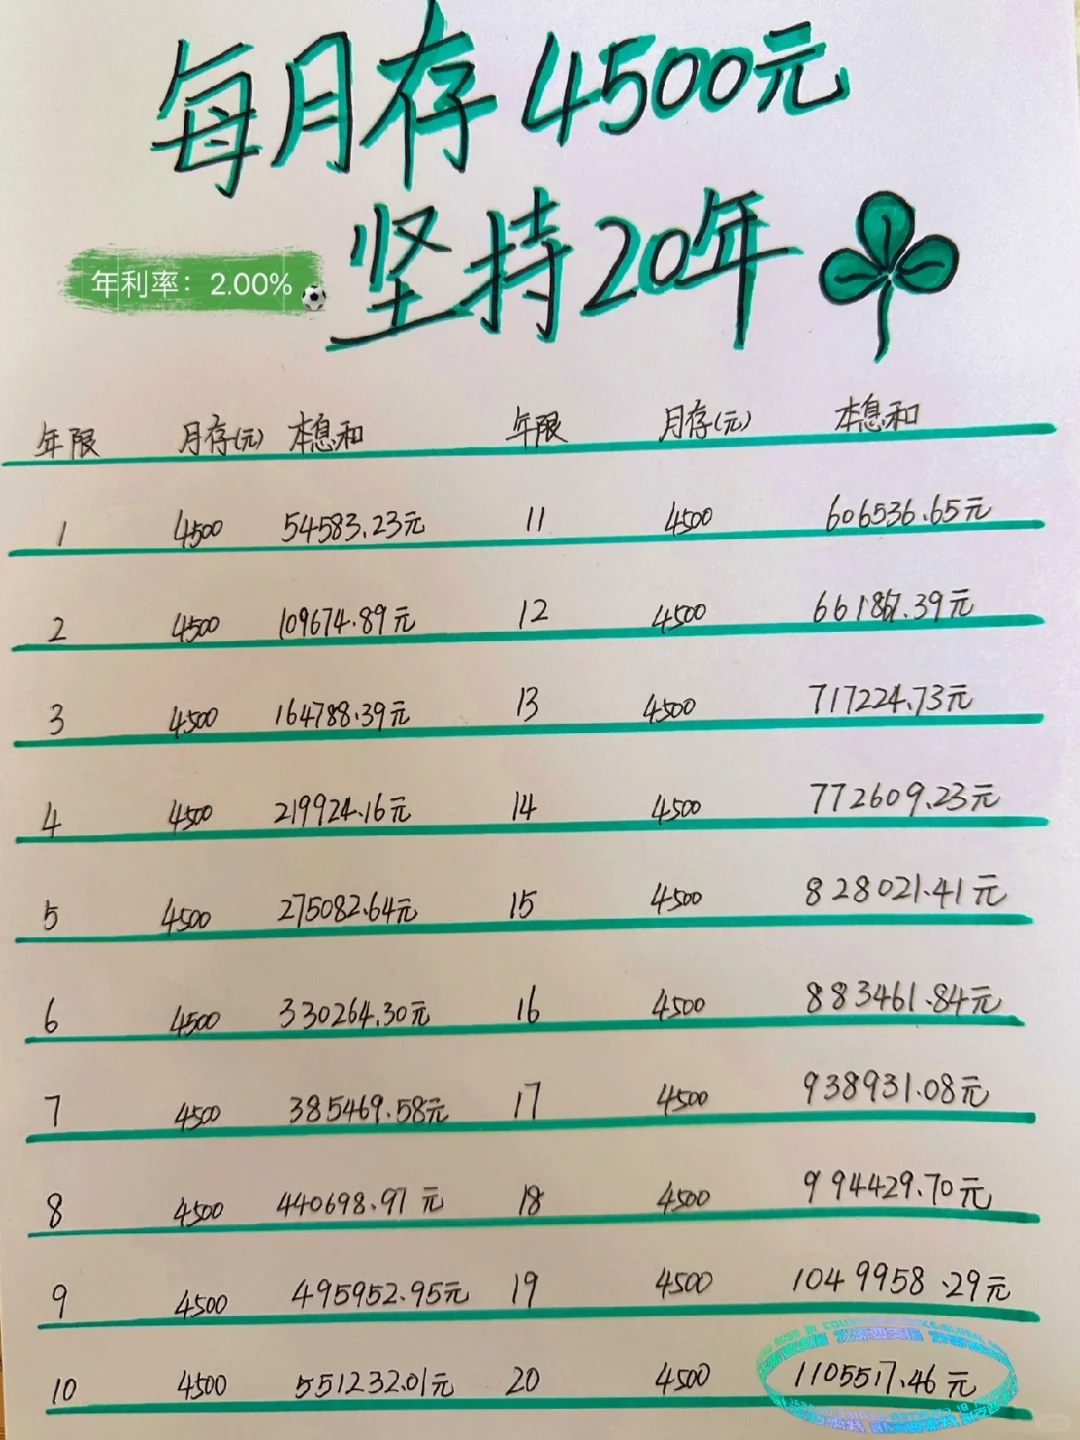 每月存4500元
坚持20年
年利率：2.00%
年限 月存(元) 本息和 年限 月存(元) 本息和
1 4500 54583.23元 11 4500 606536.65元
2 4500 109674.89元 12 4500
3 4500 164788.39元 13 4500 717224.73元
4 4500 219924.16元 14 4500 772609.23元
5 4500 275082.64元 15 4500 828021.41元
6 4500 330264.30元 16 4500 883461.84元
7 4500 385469.58元 17 4500 938931.08元
8 4500 440698.97元 18 4500 994429.70元
9 4500 495952.95元 19 4500 1049958.29元
10 4500 551232.01元 20 4500 1105517.46元